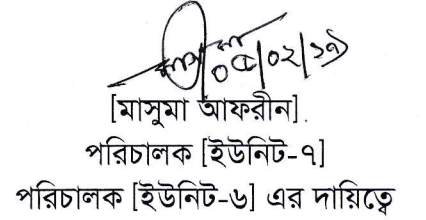 ০৫/০২/১৯
[মাসুমা আফরীন].
পরিচালক [ইউনিট-৭]
পরিচালক [ইউনিট-৬] এর দায়িত্বে